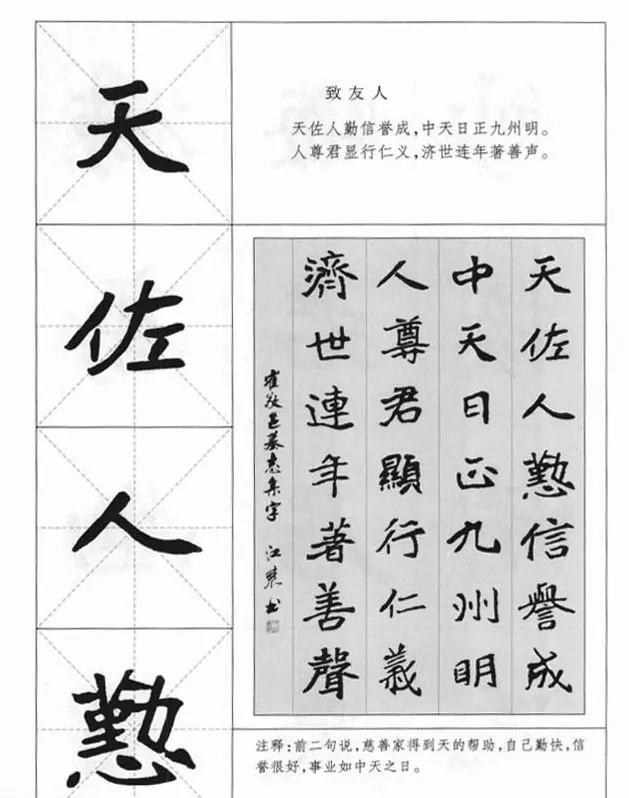 天
佐
人
懃
致友人
天佐人勤信誉成,中天日正九州明。
人尊君显行仁义,济世连年著善声。
天佐人懃信譽成
中天日正九州明
人尊君顯行仁義
濟世連年著善聲
崔敬邕墓志集字 江東书
注释:前二句说,慈善家得到天的帮助,自己勤快,信
誉很好,事业如中天之日。